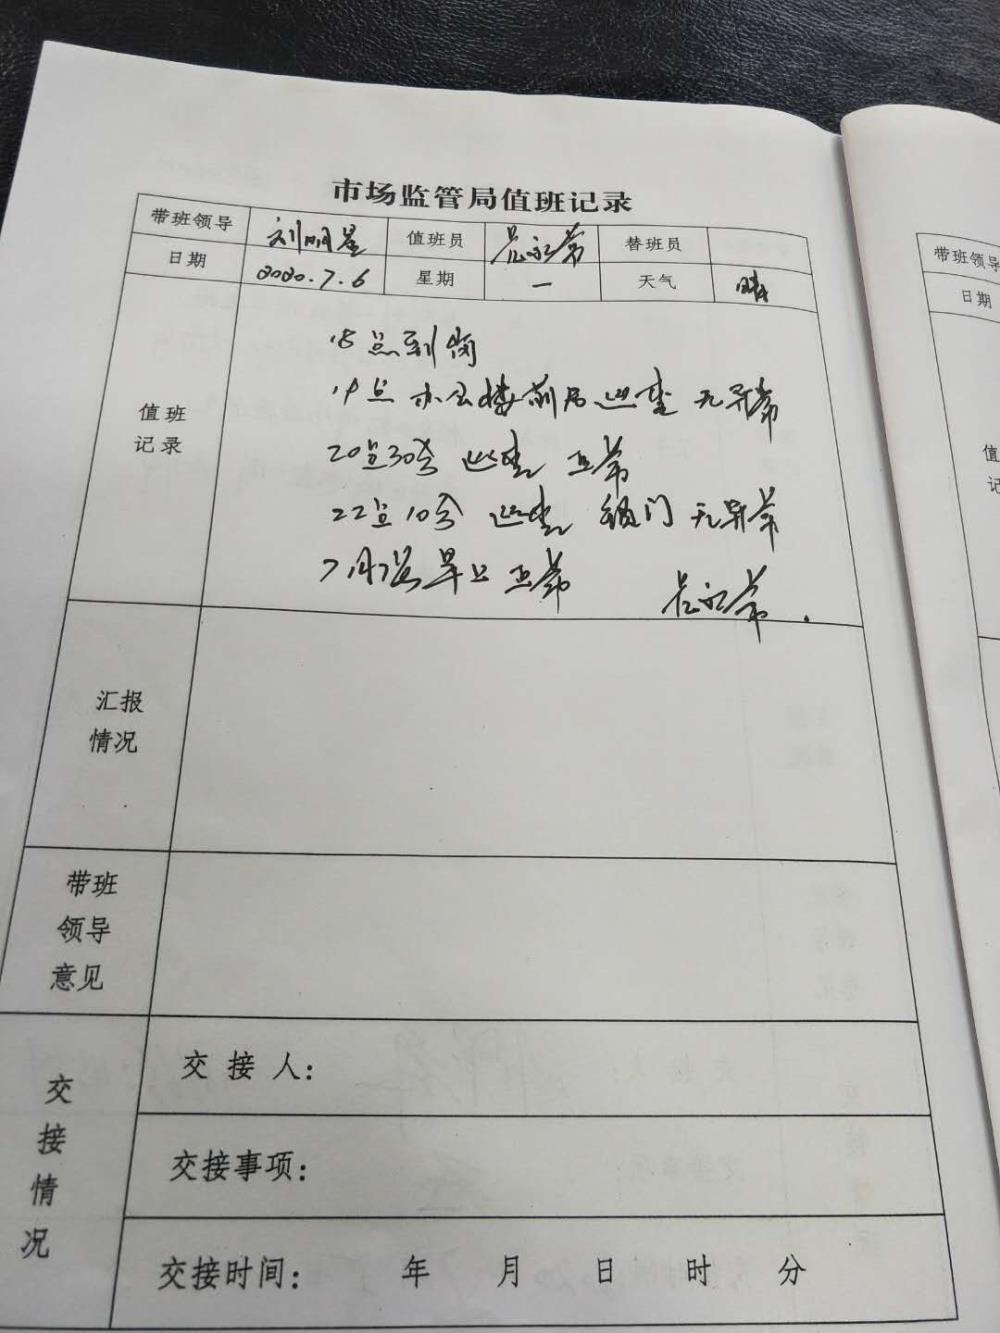 市场监管局值班记录
带班领导 刘明星 值班员 替班员
日期 2020.7.6 星期 一 天气 晴
值班记录
18点到岗
19点 办公楼前后巡查 无异常
20点30分 巡查 正常
22点10分 巡查 锁门 无异常
7月7日早上 正常
汇报情况
带班领导意见
交接情况
交接人：
交接事项：
交接时间： 年 月 日 时 分
带班领导
日期